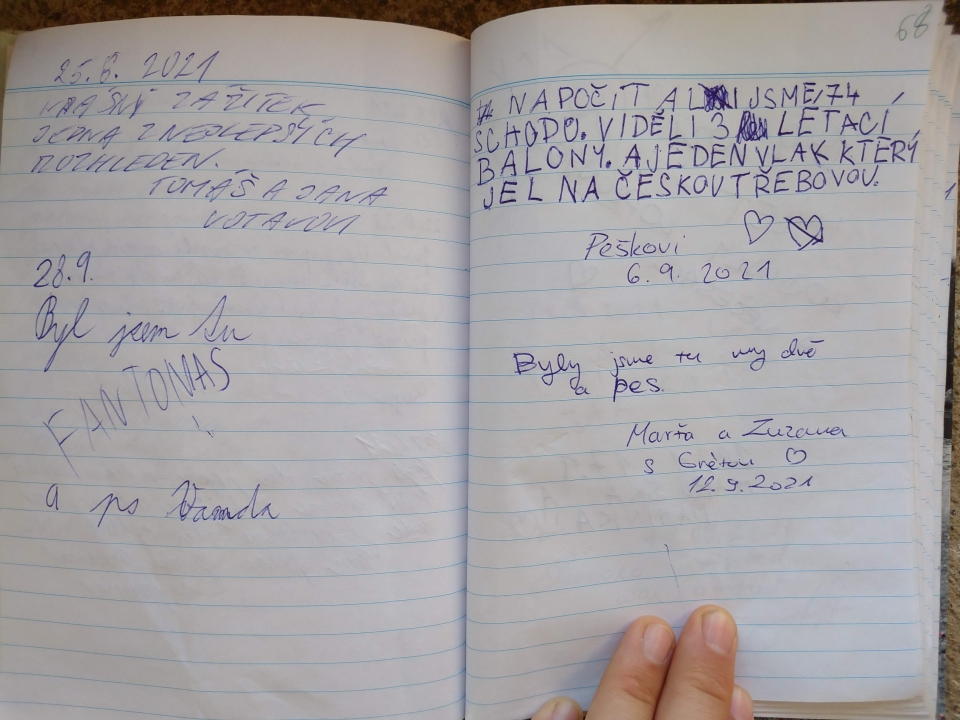 25.6. 2021
KRÁSNÝ ZÁŽITEK
JEDNA Z NEJLEPŠÝCH
ROZHLEDEN.
TOMÁŠ A JANA
VOTAVOVI
28.9.
Byl jsem tu
FANTOMAS
!
a ps
68
NAPOČÍTALI JSME 174
SCHODŮ. VIDĚLI 3 LÉTACÍ
BALONY. A JEDEN VLAK KTERÝ
JEL NA ČESKOU TŘEBOVOU.
Peškovi
6.9. 2021
Byly jsme tu my dvě
a pes.
Marťa a Zuzana
s Grétou ♡
12.9.2021